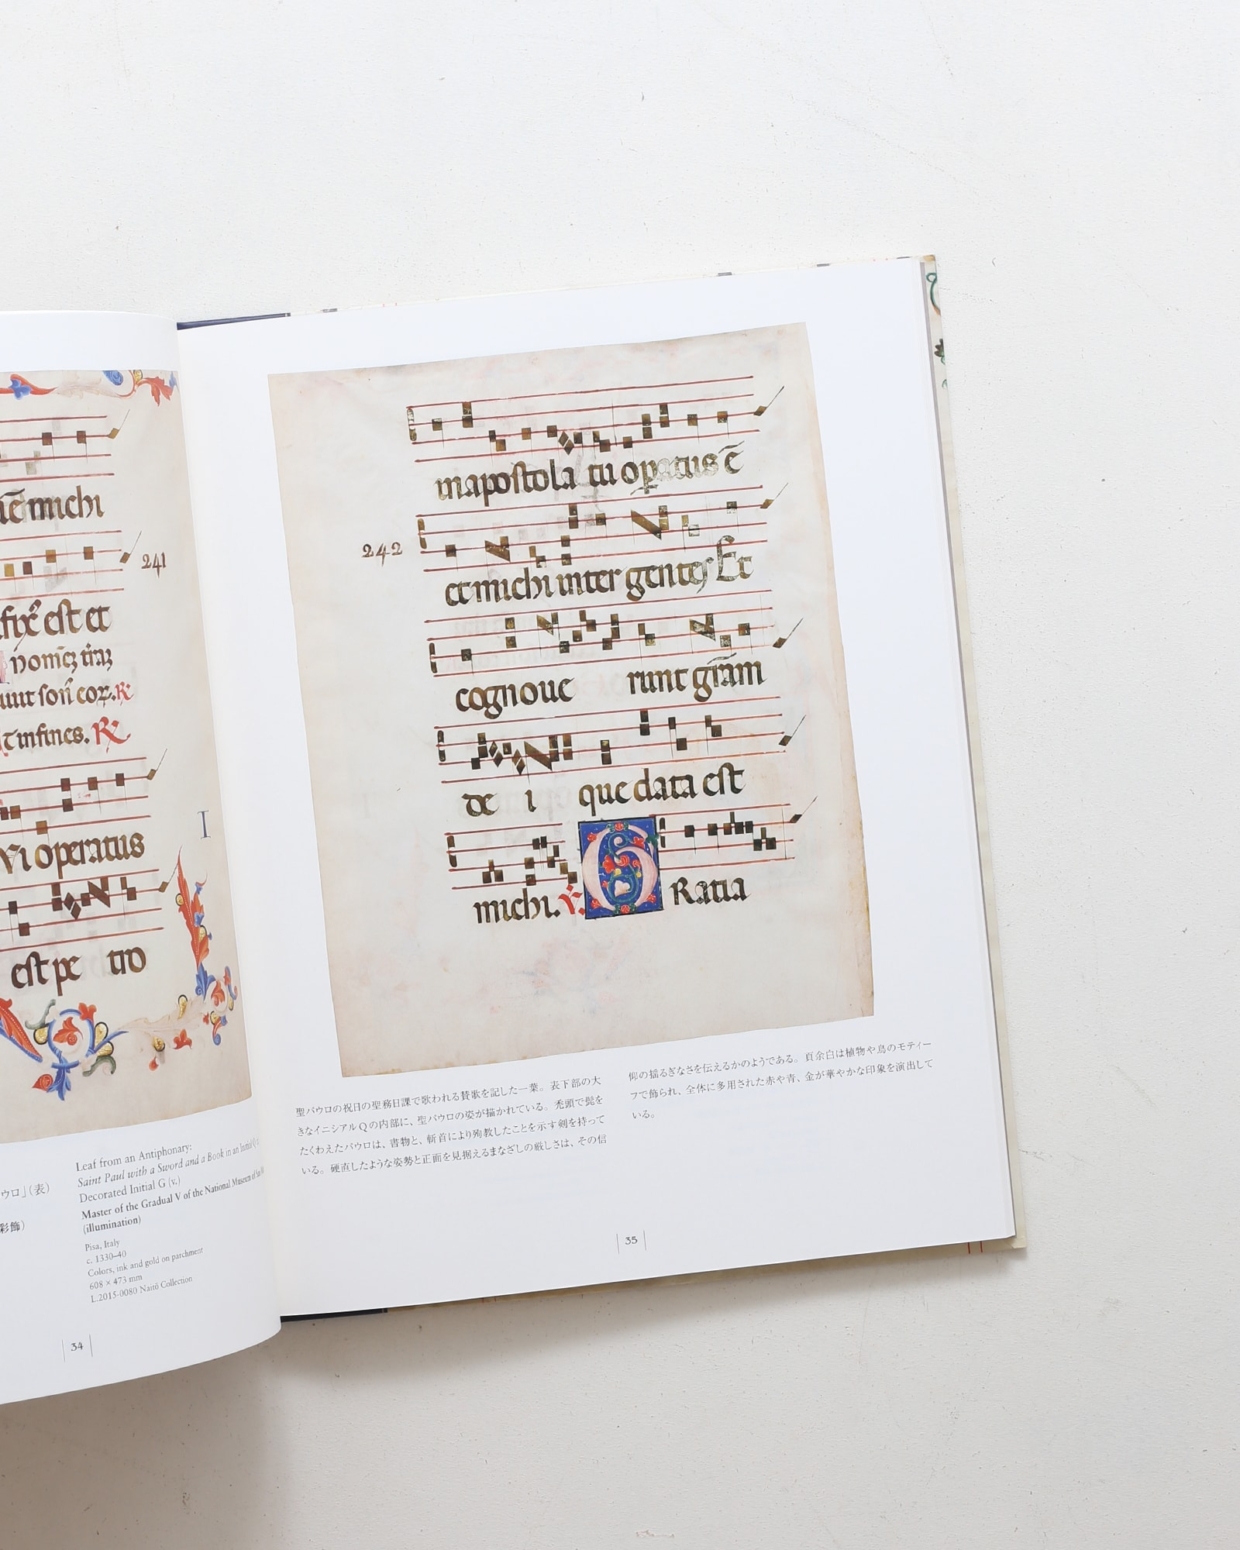 michi
241
est et
nonies
cor. R
infines. R
Vi operatus
I
est pe tro
ウロ」(表)
彩飾)
Leaf from an Antiphonary:
Saint Paul with a Sword and a Book in an Initial Q
Decorated Initial G (v.)
Master of the Gradual V of the National Museum of
(illumination)
Pisa, Italy
c. 1330–40
Colors, ink and gold on parchment
608 × 473 mm
L.2015-0080 Naitō Collection
34
in apostola tu operatus ē
242
et michi inter gentes Et
cognoue runt grām
de i que data est
michi. V. G Ratia
聖パウロの祝日の聖務日課で歌われる賛歌を記した一葉。表下部の大
きなイニシアルQの内部に、聖パウロの姿が描かれている。禿頭で髭を
たくわえたパウロは、書物と、斬首により殉教したことを示す剣を持って
いる。硬直したような姿勢と正面を見据えるまなざしの厳しさは、その信
仰の揺るぎなさを伝えるかのようである。頁余白は植物や鳥のモティー
フで飾られ、全体に多用された赤や青、金が華やかな印象を演出して
いる。
35